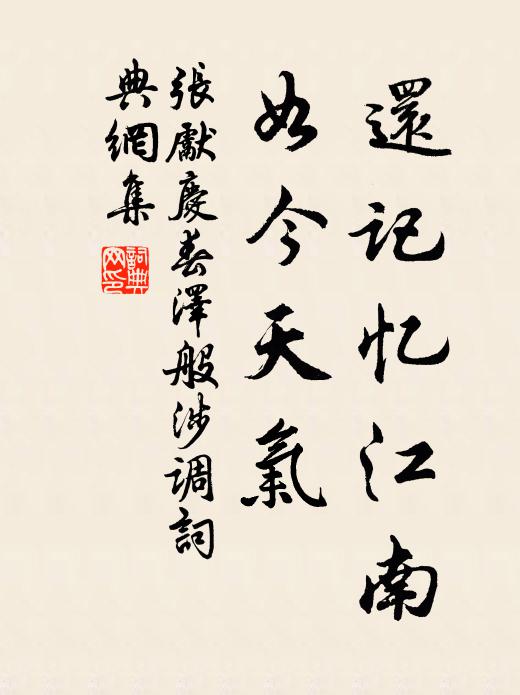 還记忆江南
如今天氣
張獻慶春澤般涉調詞
典網集
詞典
网印